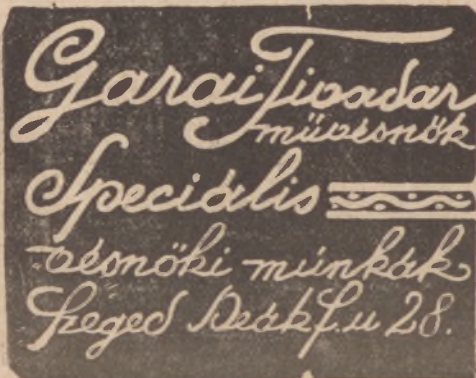 Garai Tivadar
művésnök
Speciális
vésnöki munkák
Szeged Deák f. u 28.